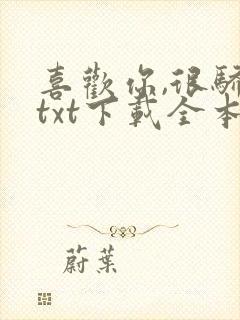 喜歡你,很驕
txt下載全本
蔚葉